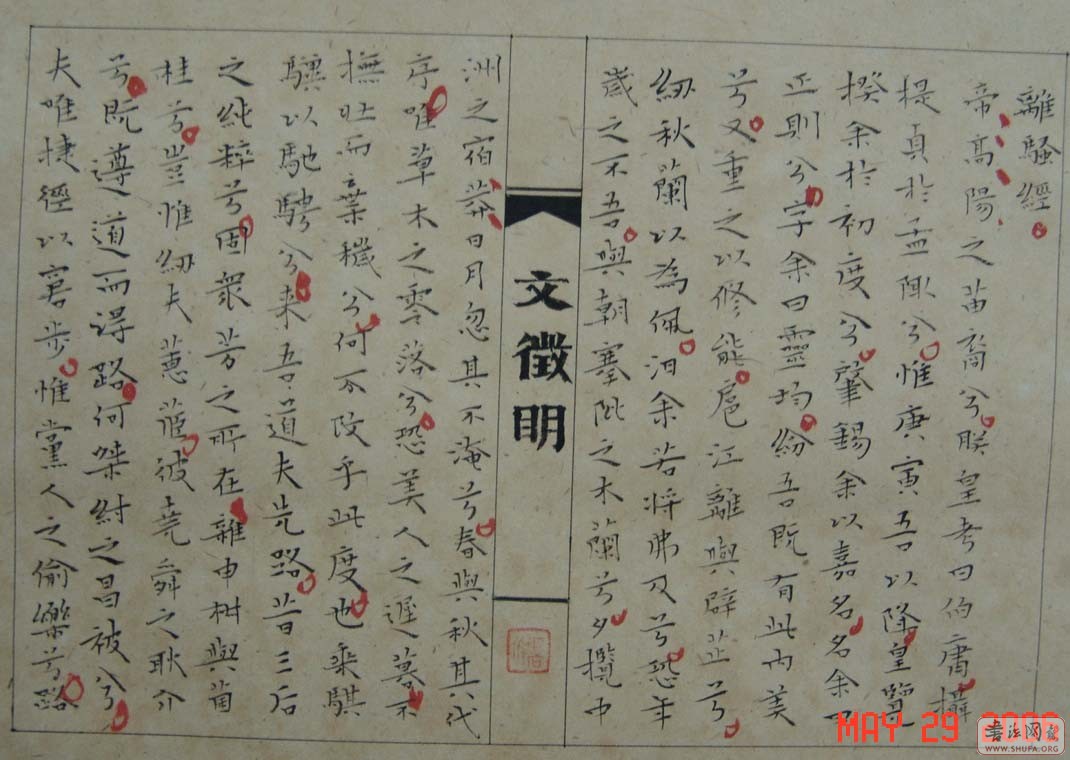 離騷經
帝高陽之苗裔兮朕皇考曰伯庸攝
提貞於孟陬兮惟庚寅吾以降皇覽
揆余於初度兮肇錫余以嘉名名余曰
正則兮字余曰靈均紛吾既有此內美
兮又重之以修能扈江離與辟芷兮
紉秋蘭以為佩汩余若將弗及兮恐年
歲之不吾與朝搴阰之木蘭兮夕攬中
文徵明
洲之宿莽日月忽其不淹兮春與秋其代
序唯草木之零落兮恐美人之遲暮不
撫壯而棄穢兮何不改乎此度也乘騏
驥以馳騁兮来吾道夫先路昔三后
之純粹兮固衆芳之所在雜申椒與菌
桂兮豈惟紉夫蕙茝彼堯舜之耿介
兮既遵道而得路何桀紂之昌被兮
夫唯捷徑以窘步惟黨人之偷樂兮路
MAY 29 2006
书法网
WWW.SHUFA.ORG